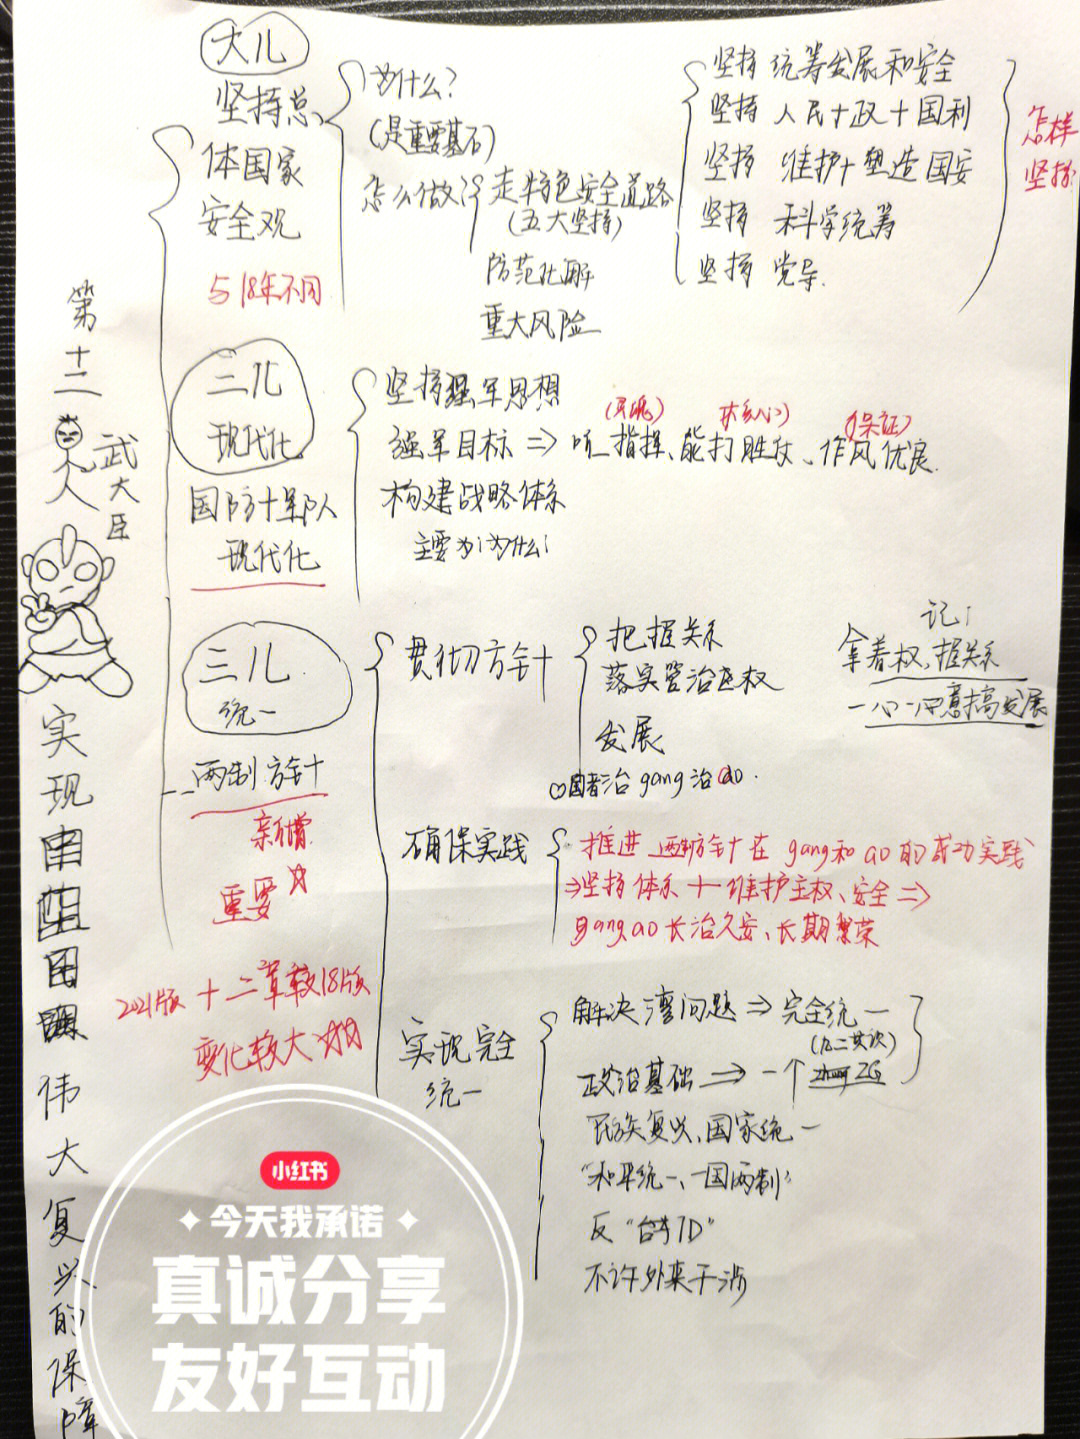 第十二
人
武大臣
实现
伟大复兴的保障
大儿
坚持总
体国家
安全观
与18年不同
为什么?
(是重要基石)
怎么做
走特色安全道路
(五大坚持)
防范化解
重大风险
坚持 统筹发展和安全
坚持 人民+政+国利
坚持 维护+塑造国安
坚持 科学统筹
坚持 党导
怎样
坚持
二儿
现代化
国防+军队
现代化
坚持强军思想
强军目标 ⇒ 听 指挥、能打胜仗、作风优良
(灵魂) (核心) (保证)
构建战略体系
主要为什么
三儿
统一
两制方针
新增
重要
2021版 十二章较18版
变化较大
贯彻方针
把握关系
落实管治主权
发展
国者治gang治ao.
记
拿着权,握关系
一心一意搞发展
确保实践
推进两制方针在gang和ao的成功实践
⇒坚持体系+维护主权、安全⇒
gang ao长治久安、长期繁荣
实现完全
统一
解决湾问题⇒完全统一
(九二共识)
政治基础⇒一个 ZG
民族复兴,国家统一
"和平统一、一国两制"
反"台独"
不许外来干涉
小红书
今天我承诺
真诚分享
友好互动